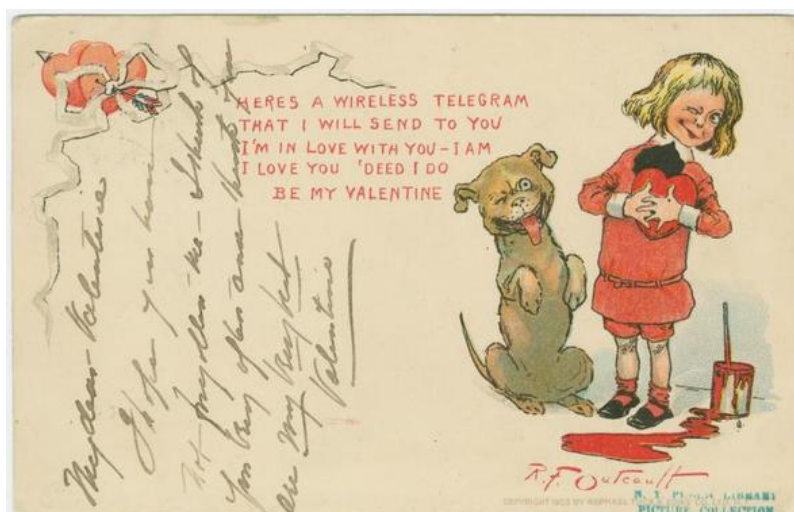 HERES A WIRELESS TELEGRAM
THAT I WILL SEND TO YOU
I'M IN LOVE WITH YOU - I AM
I LOVE YOU 'DEED I DO
BE MY VALENTINE
My dear Valentine
I hope you have
not forgotten me - I think of
you very often and
are my
Valentine
R.F. Outcault
COPYRIGHT 1903 BY RAPHAEL TUCK
N. Y. PUBLIC LIBRARY
PICTURE COLLECTION